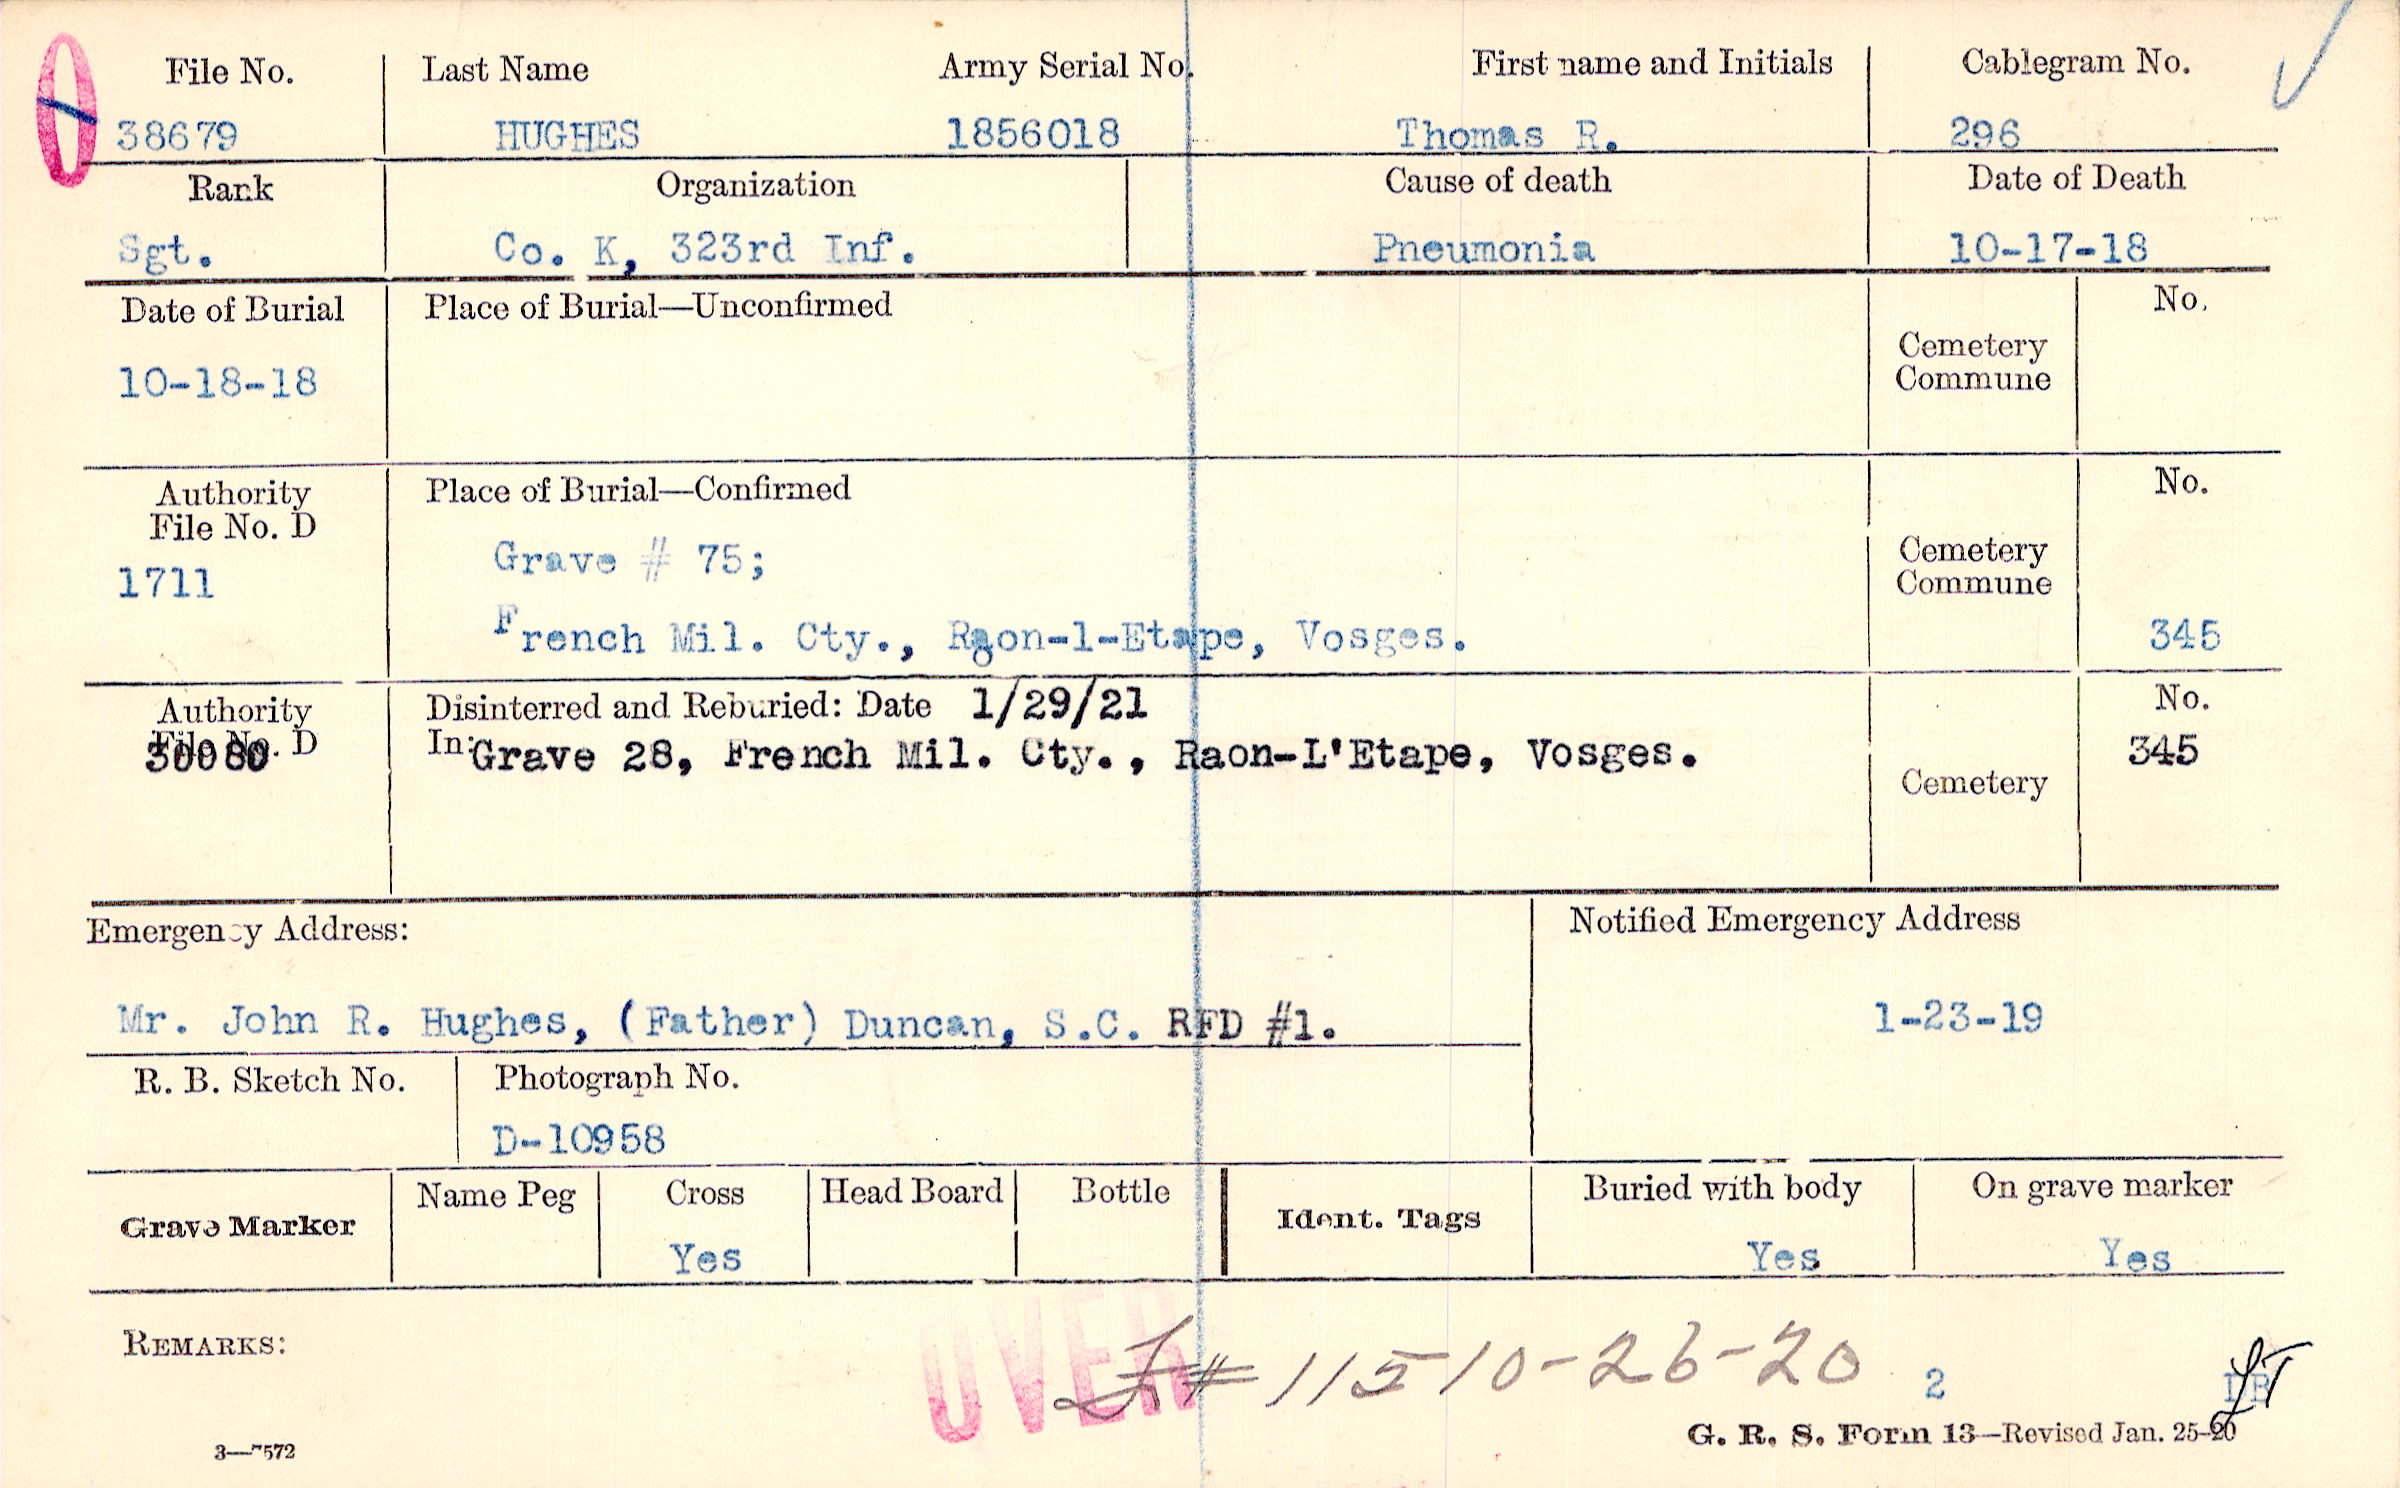 File No. Last Name Army Serial No. First name and Initials Cablegram No.
38679 HUGHES 1856018 Thomas R. 296
Rank Organization Cause of death Date of Death
Sgt. Co. K, 323rd Inf. Pneumonia 10-17-18
Date of Burial Place of Burial—Unconfirmed No.
Cemetery
Commune
10-18-18
Authority Place of Burial—Confirmed No.
File No. D
1711
Grave # 75;
Cemetery
Commune
French Mil. Cty., Raon-l-Etape, Vosges. 345
Authority Disinterred and Reburied: Date 1/29/21 No.
File No. D In: Grave 28, French Mil. Cty., Raon-L'Etape, Vosges. 345
Cemetery
Emergency Address: Notified Emergency Address
Mr. John R. Hughes, (Father) Duncan, S.C. RFD #1. 1-23-19
R. B. Sketch No. Photograph No.
D-10958
Grave Marker Name Peg Cross Head Board Bottle Ident. Tags Buried with body On grave marker
Yes Yes Yes
REMARKS:
OVER
# 115 10-26-20 2
3—7572 G. R. S. Form 13—Revised Jan. 25-20